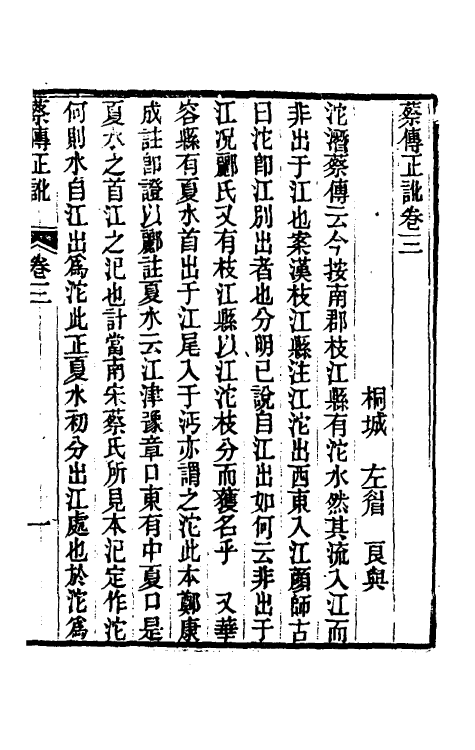 蔡傳正訛卷三
桐城 左眉 良與
沱潛蔡傳云今按南郡枝江縣有沱水然其流入江而
非出于江也案漢枝江縣注江沱出西東入江顏師古
曰沱卽江別出者也分明已說自江出如何云非出于
江况酈氏又有枝江縣以江沱枝分而獲名乎 又華
容縣有夏水首出于江尾入于沔亦謂之沱此本鄭康
成註卽證以酈註夏水云江津豫章口東有中夏口是
夏水之首江之汜也計當南宋蔡氏所見本汜定作沱
何則水自江出爲沱此正夏水初分出江處也於沱爲
蔡傳正訛 卷三 一